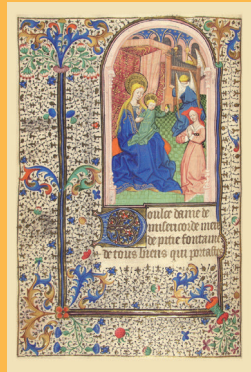 Doulce dame de
misericorde me
de pitie fontaine
de tous biens qui portast